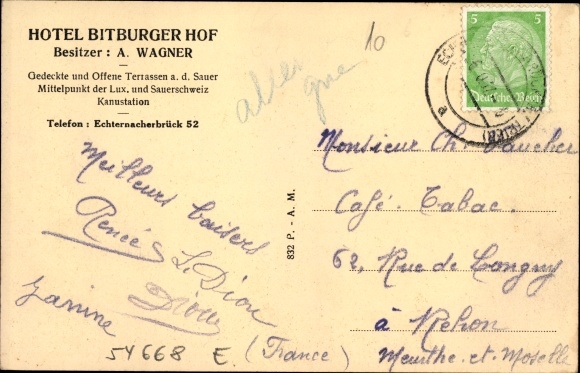 HOTEL BITBURGER HOF
Besitzer : A. WAGNER
Gedeckte und Offene Terrassen a. d. Sauer
Mittelpunkt der Lux. und Sauerschweiz
Kanustation
Telefon : Echternacherbrück 52
10
5 5
Deutsches Reich
a
(TRIER)
832 P. - A. M.
Meilleurs baisers
Renée
L. Diou
Diou
Janine
Monsieur Ch.
Café-Tabac.
62, Rue de Longwy
à Réhon
Meurthe-et-Moselle
(France)
54668 E.